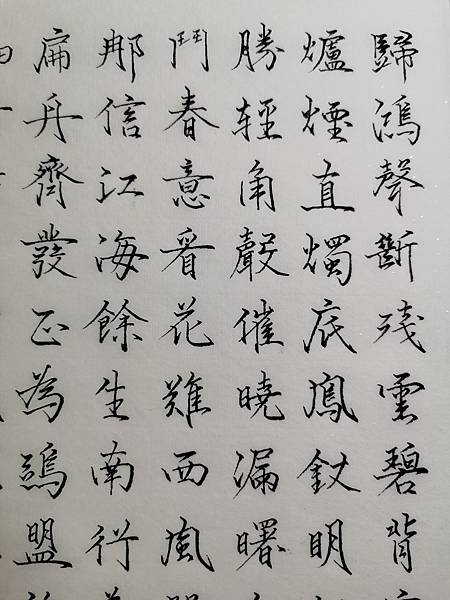 歸鴻聲斷殘雲碧背
爐煙直燭底鳳釵明
勝輕角聲催曉漏曙
鬥春意看花難西風
那信江海餘生南行
扁舟齊發正為鷗盟